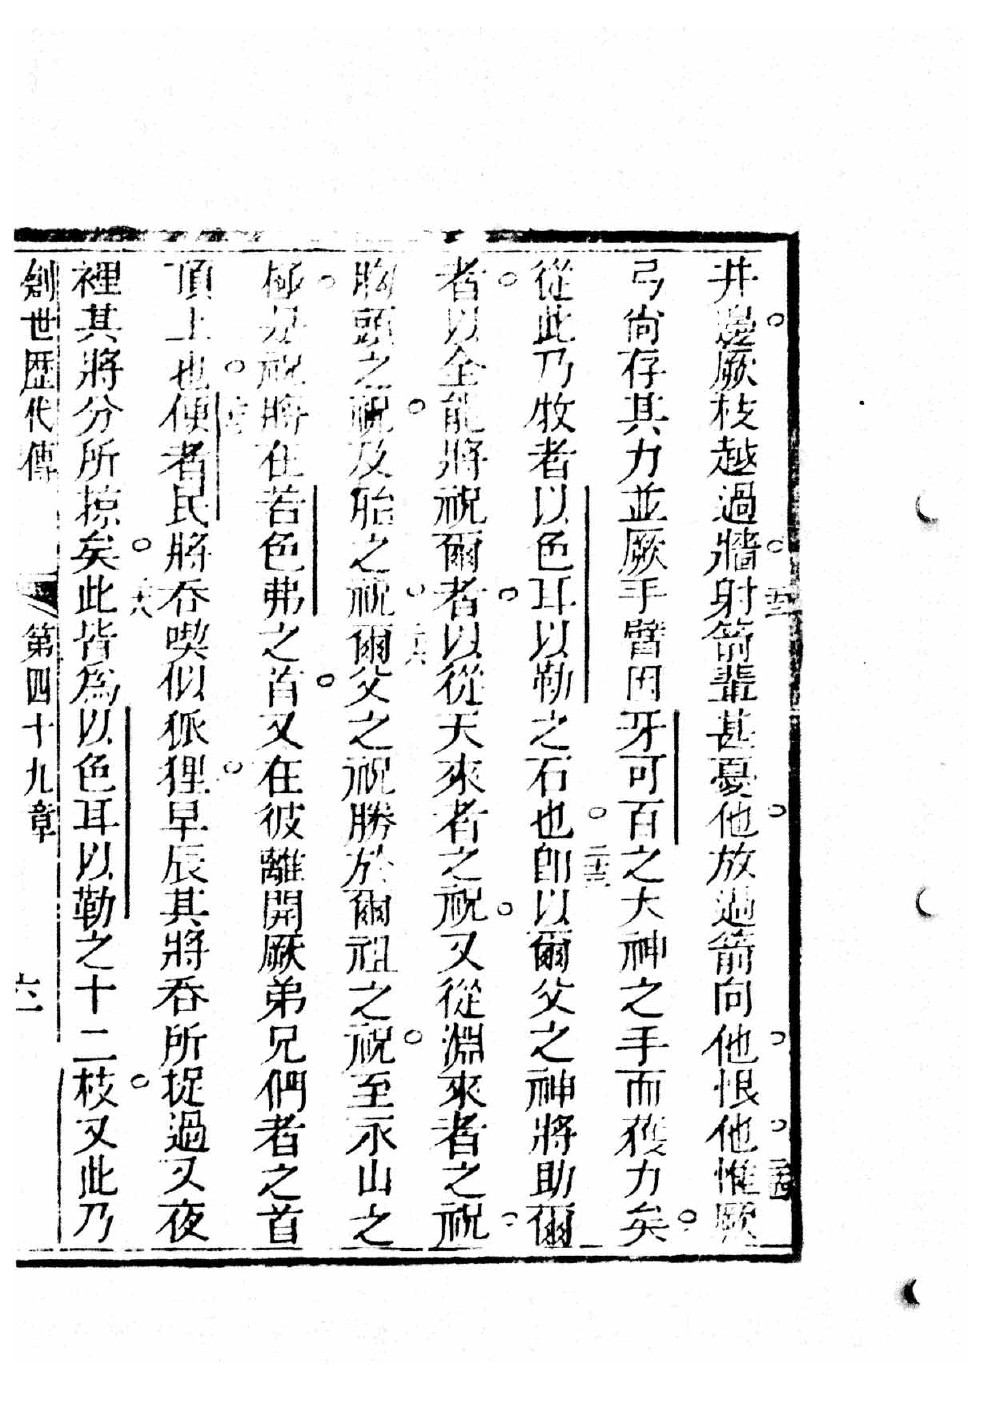 井邊厥枝越過牆射箭輩甚憂他放過箭向他恨他惟厥
弓尙存其力並厥手臂因牙可百之大神之手而獲力矣
從此乃牧者以色耳以勒之石也卽以爾父之神將助爾
者以全能將祝爾者以從天來者之祝又從淵來者之祝
胸頭之祝及胎之祝爾父之祝勝於爾祖之祝至永山之
極界祝將在若色弗之首又在彼離開厥弟兄們者之首
頂上也便者民將吞喫似狐狸早辰其將吞所捉過又夜
裡其將分所掠矣此皆爲以色耳以勒之十二枝又此乃
創世歷代傳 第四十九章 六一